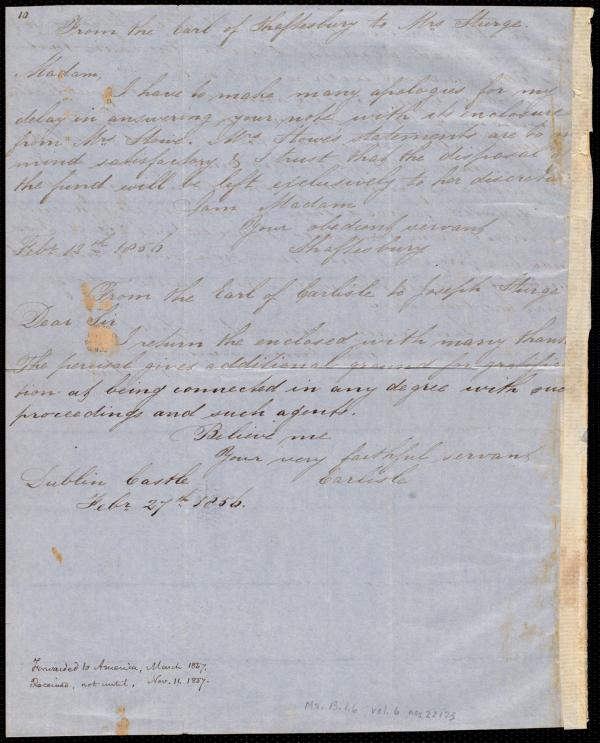 10
From the Earl of Shaftesbury to Mrs Sturge.
Madam,
I have to make many apologies for my
delay in answering your note with its inclosure
from Mrs Stowe. Mrs Stowe's statements are to my
mind satisfactory, & I trust that the disposal of
the fund will be left exclusively to her discretion
I am Madam
Your obedient servant
Shaftesbury
Febr 12th 1856
From the Earl of Carlisle to Joseph Sturge
Dear Sir
I return the enclosed with many thanks
The perusal gives additional ground for gratifica
tion at being connected in any degree with such
proceedings and such agents.
Believe me
Your very faithful servant
Carlisle
Dublin Castle
Febr 27th 1856.
Forwarded to America, March 1857.
Received, not until, Nov. 11. 1857.
Ms. B.1.6 vol. 6 no